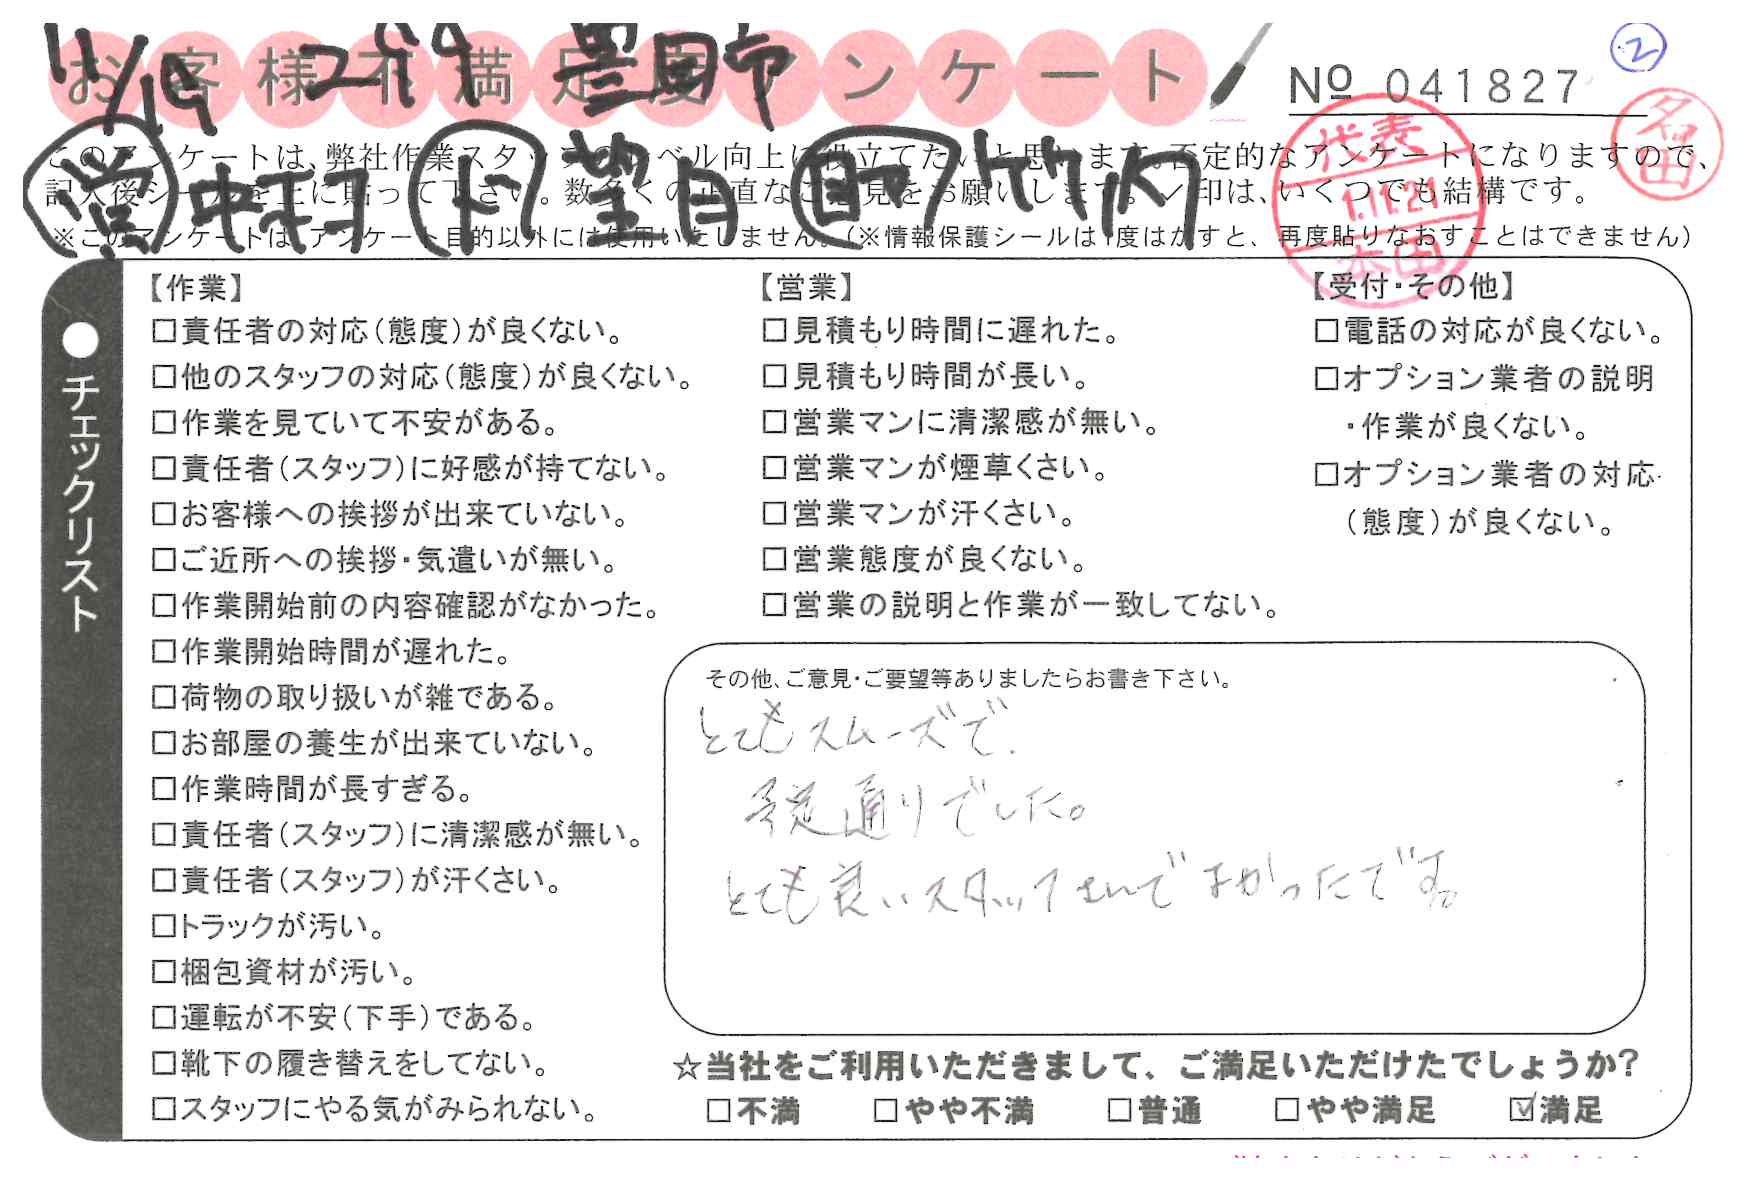 お客様不満足度アンケート
11/19 豊田市
№ 041827
②
名田
このアンケートは、弊社作業スタッフのレベル向上に役立てたいと思います。否定的なアンケートになりますので、
記入後シールを上に貼って下さい。数多くの正直なご意見をお願いします。レ印は、いくつでも結構です。
※このアンケートは、アンケート目的以外には使用いたしません。(※情報保護シールは1度はがすと、再度貼りなおすことはできません)
営 中村 望月 竹内
代表
1.11.21
本田
●チェックリスト
【作業】
□責任者の対応(態度)が良くない。
□他のスタッフの対応(態度)が良くない。
□作業を見ていて不安がある。
□責任者(スタッフ)に好感が持てない。
□お客様への挨拶が出来ていない。
□ご近所への挨拶・気遣いが無い。
□作業開始前の内容確認がなかった。
□作業開始時間が遅れた。
□荷物の取り扱いが雑である。
□お部屋の養生が出来ていない。
□作業時間が長すぎる。
□責任者(スタッフ)に清潔感が無い。
□責任者(スタッフ)が汗くさい。
□トラックが汚い。
□梱包資材が汚い。
□運転が不安(下手)である。
□靴下の履き替えをしてない。
□スタッフにやる気がみられない。
【営業】
□見積もり時間に遅れた。
□見積もり時間が長い。
□営業マンに清潔感が無い。
□営業マンが煙草くさい。
□営業マンが汗くさい。
□営業態度が良くない。
□営業の説明と作業が一致してない。
【受付・その他】
□電話の対応が良くない。
□オプション業者の説明
・作業が良くない。
□オプション業者の対応
(態度)が良くない。
その他、ご意見・ご要望等ありましたらお書き下さい。
とてもスムーズで、
予定通りでした。
とても良いスタッフさんでよかったです。
☆当社をご利用いただきまして、ご満足いただけたでしょうか?
□不満 □やや不満 □普通 □やや満足 ☑満足